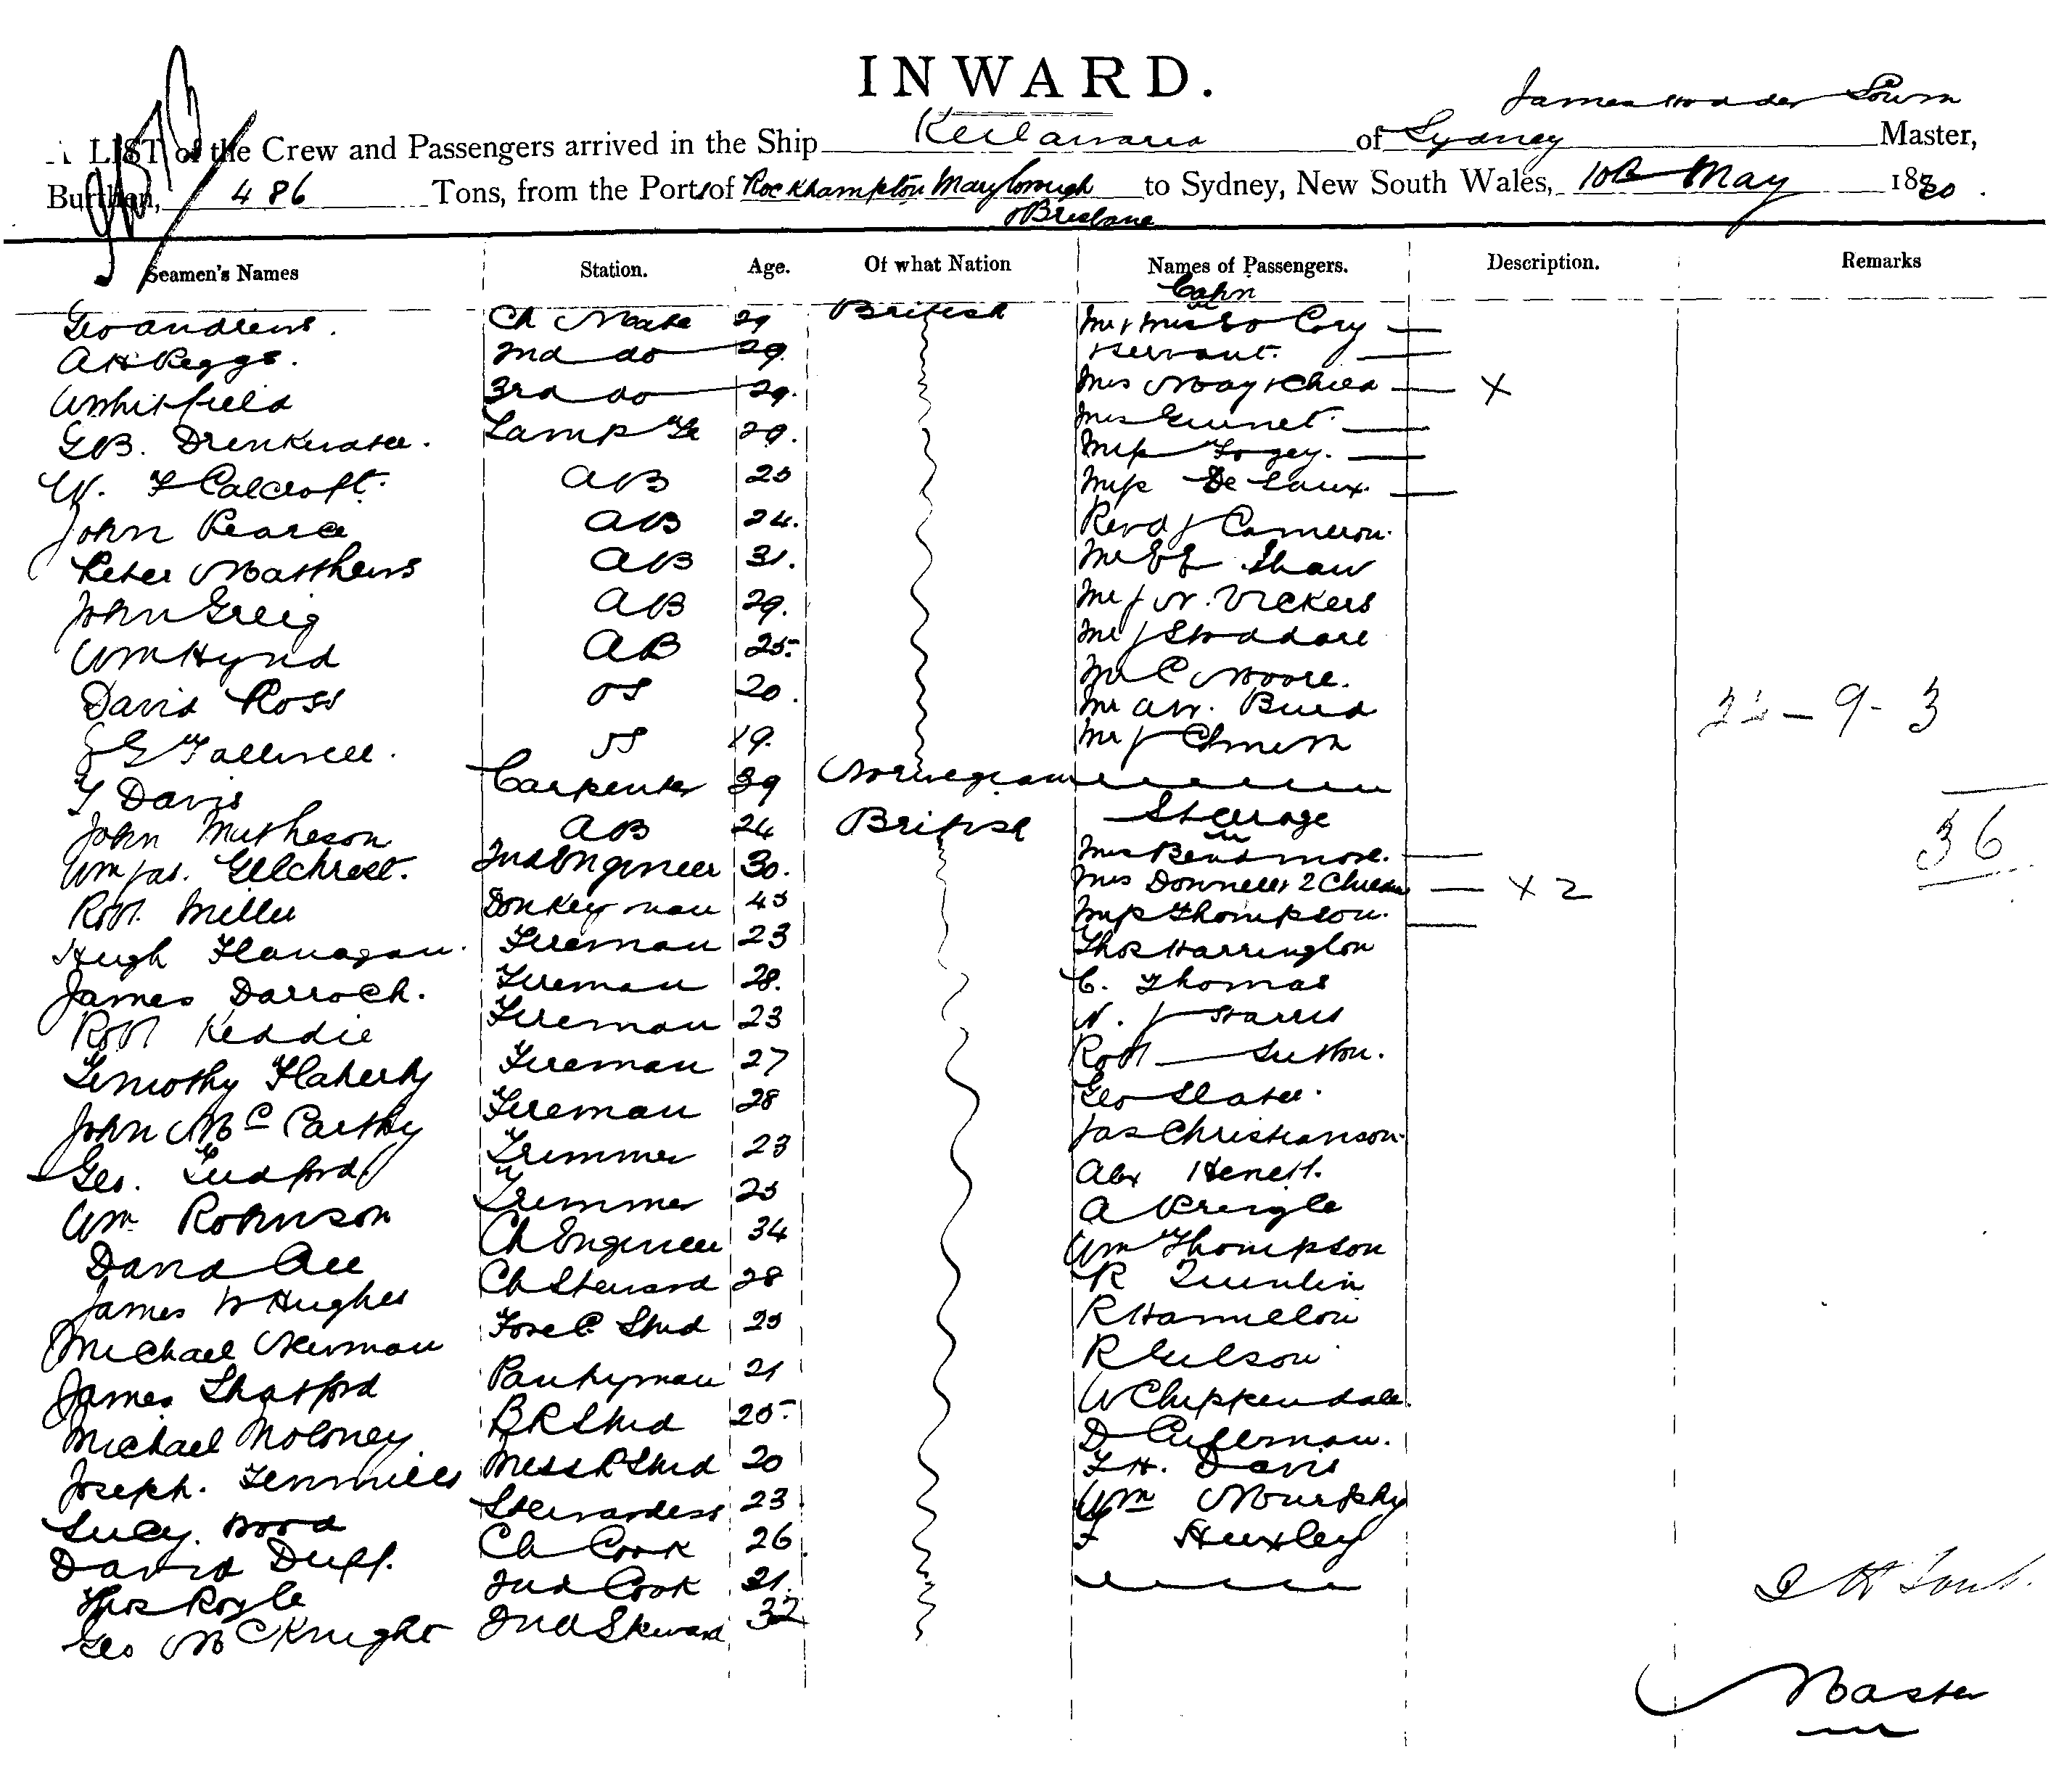 INWARD.
James
A LIST of the Crew and Passengers arrived in the Ship Keilawarra of Sydney Master,
Burthen, 486 Tons, from the Ports of Rockhampton Maryborough to Sydney, New South Wales, 10th May 18
& Brisbane
Seamen's Names Station. Age. Of what Nation Names of Passengers. Description. Remarks
Cabin
Geo Andrews. Ch Mate 29 British Mr & Mrs Cory —
A H Peggs. 2nd do 29. Servant. —
Whitfield 3rd do 29. Mrs May & Child — X
G B. Drinkwater. Lamp Tr 29. Mrs —
W. F Calcroft. AB 25 Miss Fogey. —
John Pearce AB 24. Miss De Laux. —
Peter Matthews AB 31. Revd J Cameron.
John Greig AB 29. Mr E E Shaw
Wm Hynd AB 25. Mr J W. Vickers
David Ross OS 20. Mr J Stoddart
OS 19. Mr C Moore.
T Davis Carpenter 39 Norwegian Mr A W. Bird
John Matheson AB 24 British Mr J
Wm Jas. Gilchrist. 2nd Engineer 30. Steerage
Robt. Miller Donkeyman 45 Mrs —
Hugh Flanagan. Fireman 23 Mrs Donnell & 2 Children — X 2
James Darroch. Fireman 28. Miss Thompson. —
Robt Keddie Fireman 23 Thos Harrington
Timothy Flaherty Fireman 27 C. Thomas
John McCarthy Fireman 28 W. J Harris
Geo. Ludford Trimmer 23 Robt — Sutton.
Wm Robinson Trimmer 25 Geo Slater.
David Ch Engineer 34 Jas Christianson.
James W Hughes Ch Steward 28 Alex
Michael Newman Fore C Stwd 25 A Pringle
James Shatford Pantryman 21 Wm Thompson
Michael Moloney BR Stwd 25 R Quinlin
Joseph. Mess R Stwd 20 R Hamilton
Lucy. Wood Stewardess 23 R Gilson
David Duff. Ch Cook 26 W Chippendale.
Thos Royle 2nd Cook 21. D
Geo McKnight 2nd Steward 32 F H. Davis
Wm Murphy
F Huxley
22 - 9 - 3
36
Master